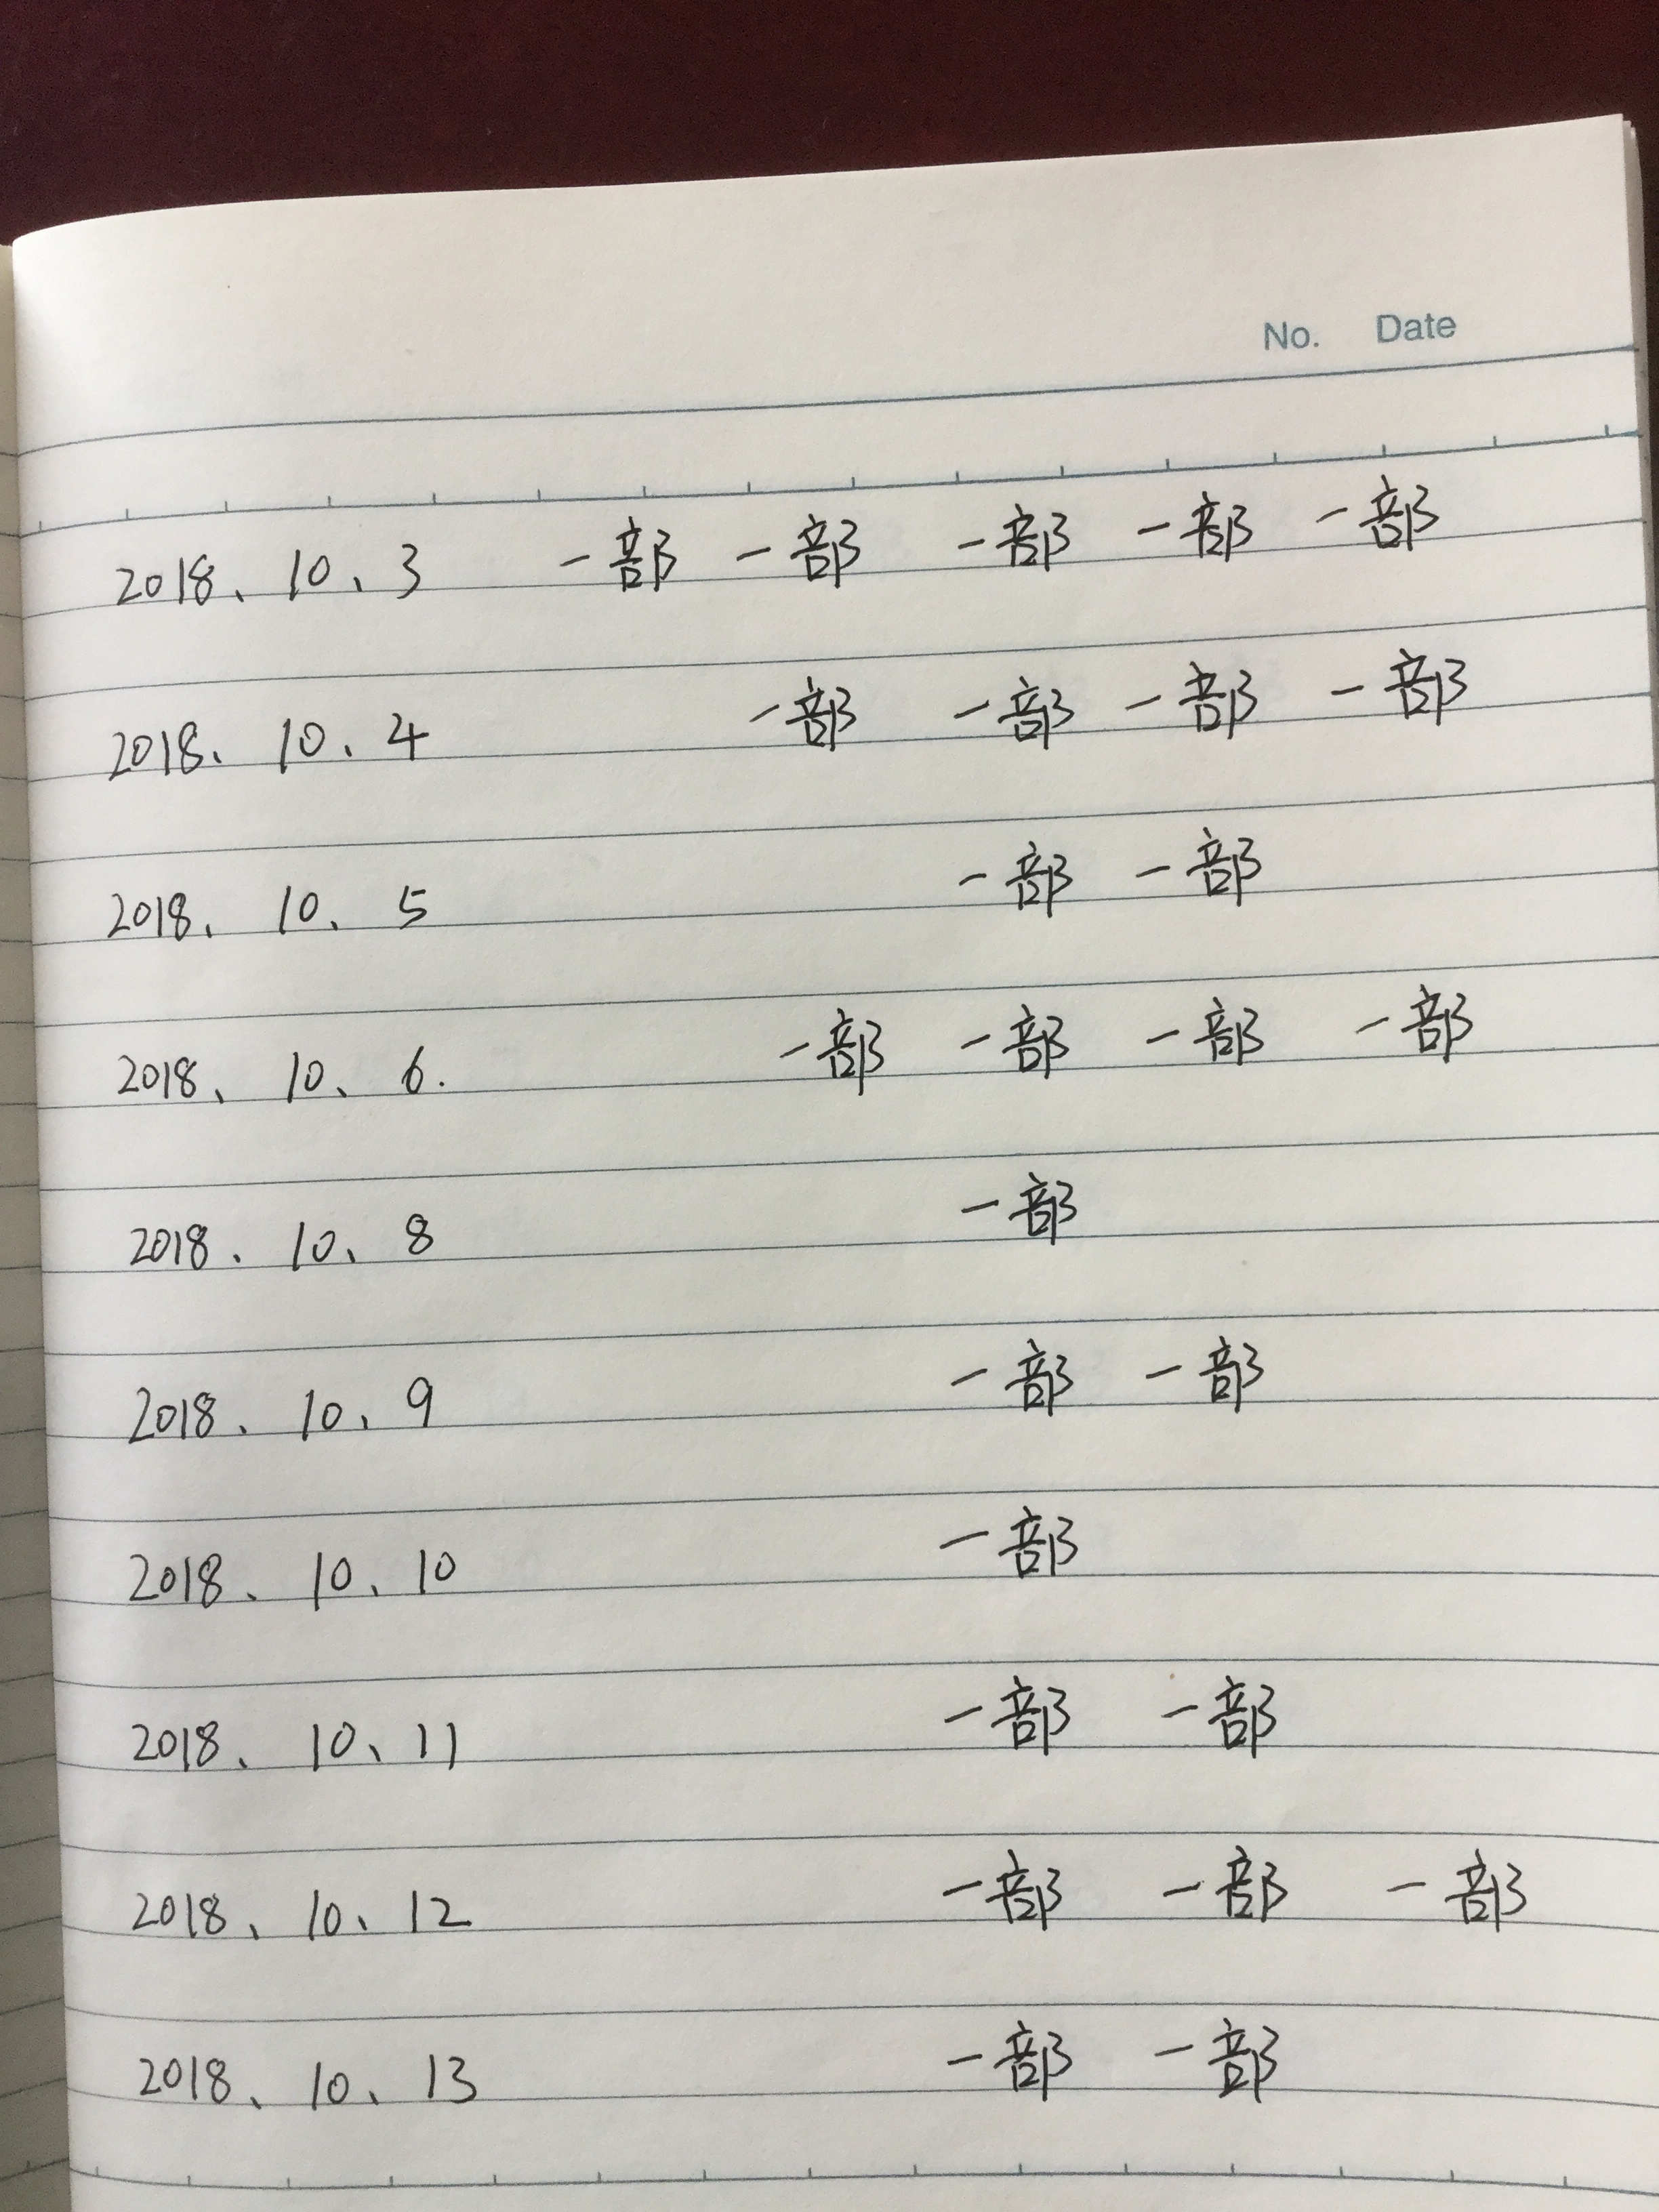 No. Date
2018、10、3 一部 一部 一部 一部 一部
2018、10、4 一部 一部 一部 一部
2018、10、5 一部 一部
2018、10、6. 一部 一部 一部 一部
2018、10、8 一部
2018、10、9 一部 一部
2018、10、10 一部
2018、10、11 一部 一部
2018、10、12 一部 一部 一部
2018、10、13 一部 一部